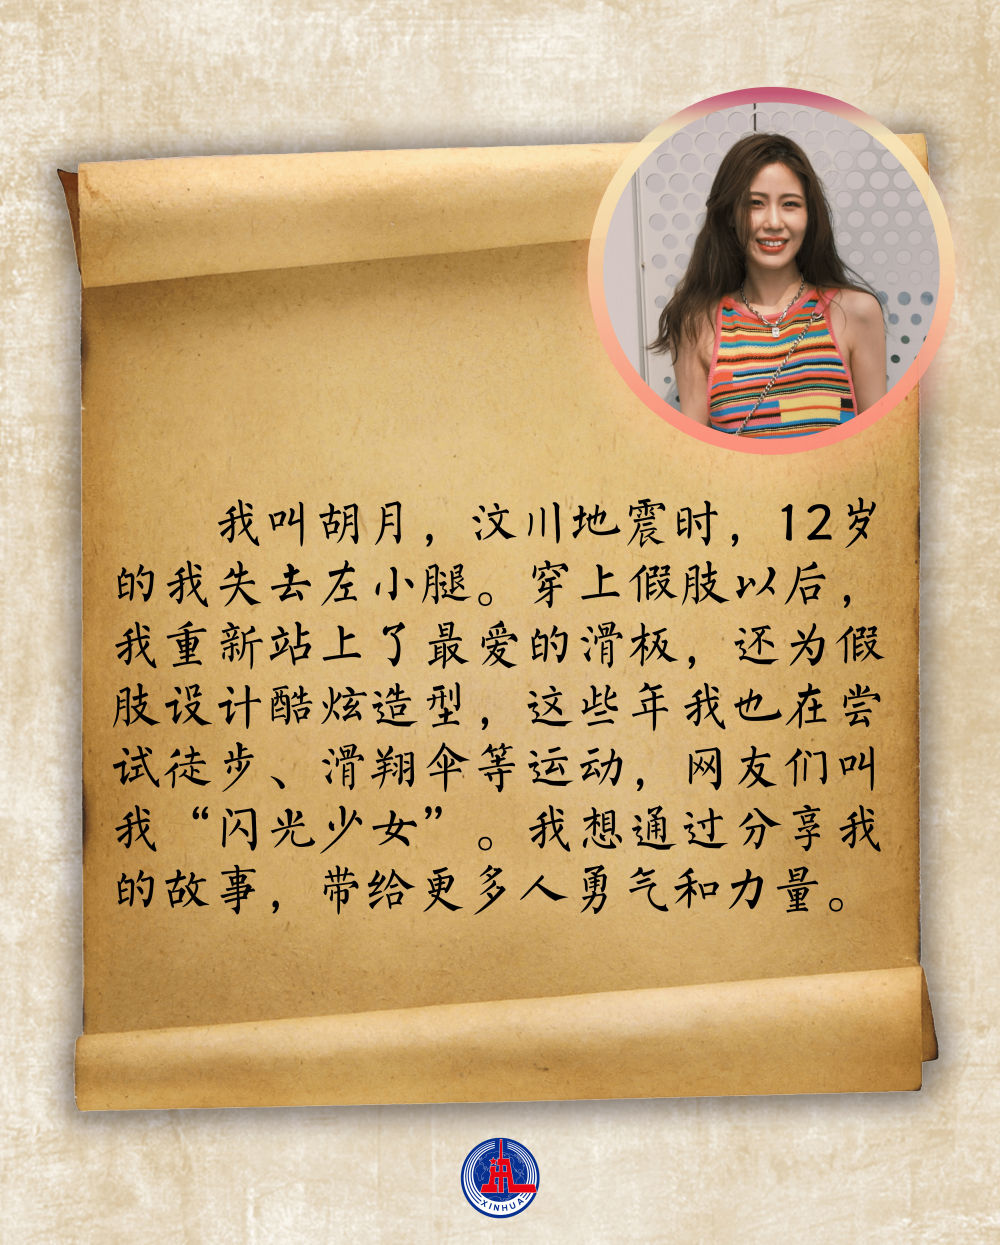 我叫胡月，汶川地震时，12岁
的我失去左小腿。穿上假肢以后，
我重新站上了最爱的滑板，还为假
肢设计酷炫造型，这些年我也在尝
试徒步、滑翔伞等运动，网友们叫
我“闪光少女”。我想通过分享我
的故事，带给更多人勇气和力量。
XINHUA